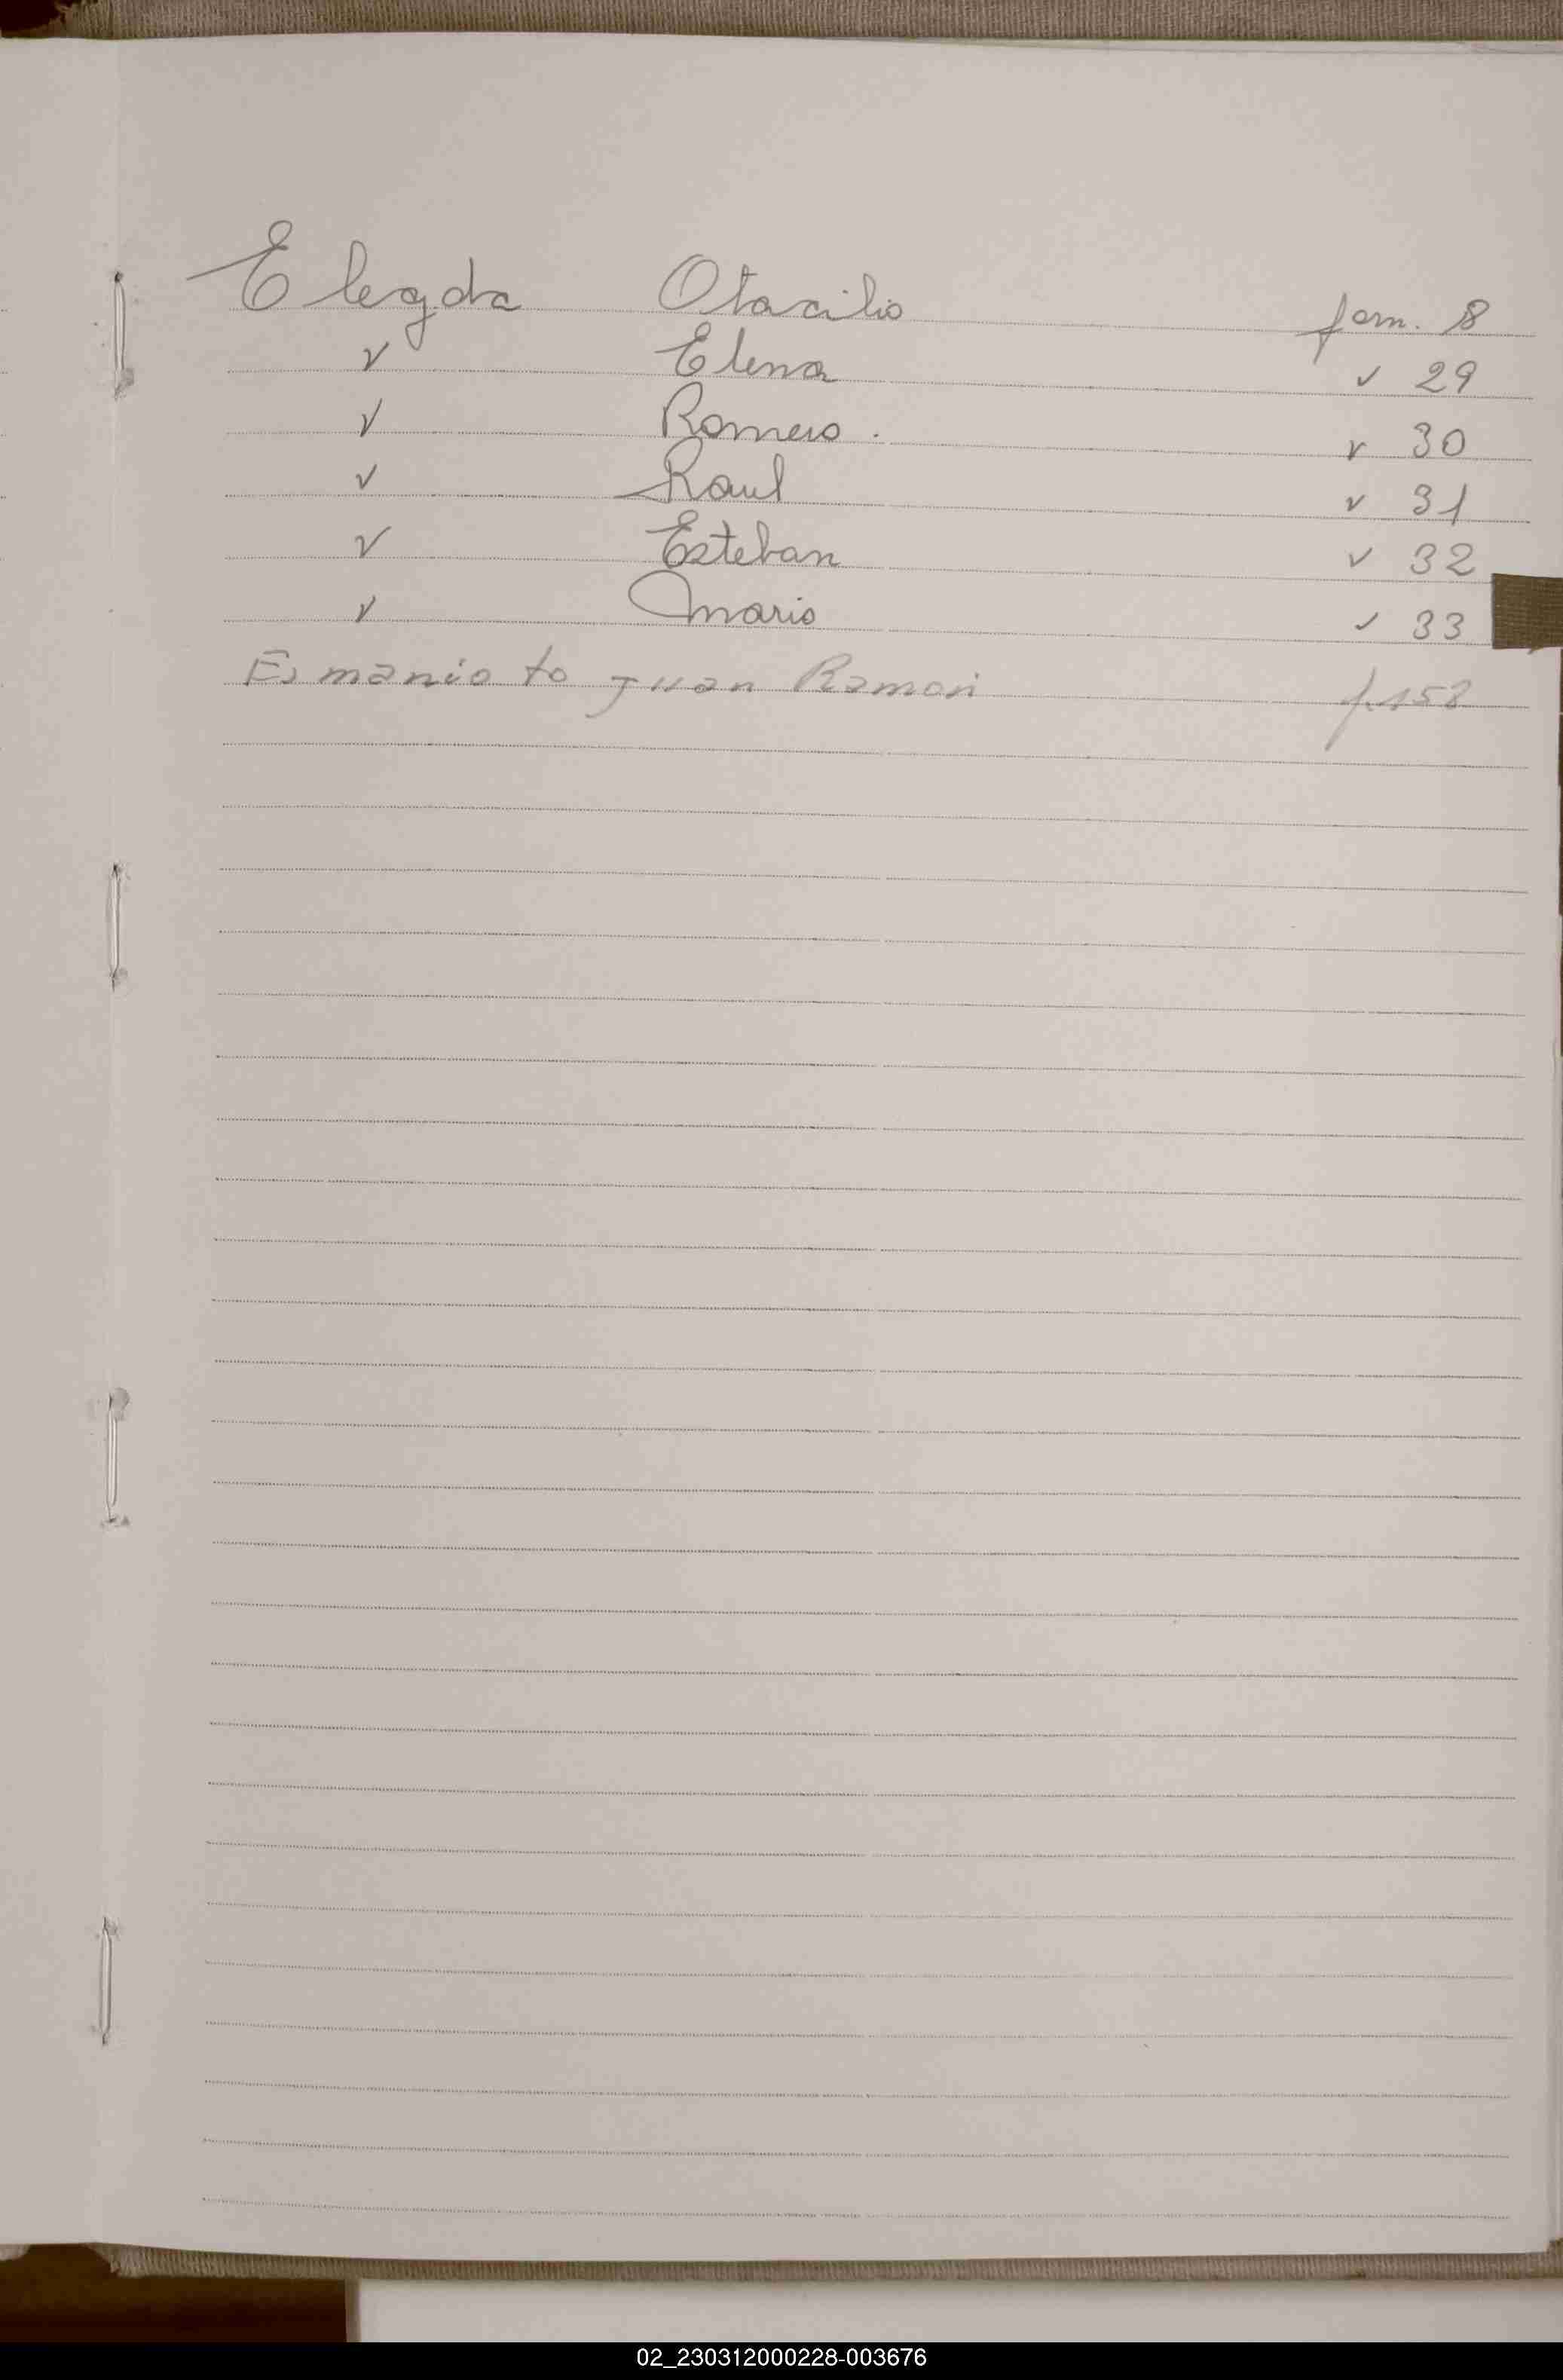 Elegda Otacilio fam. 8
v Elena v 29
v Romero. v 30
v Raul v 31
v Esteban v 32
v Mario v 33
Esmanioto Juan Ramon f. 158
02_230312000228-003676